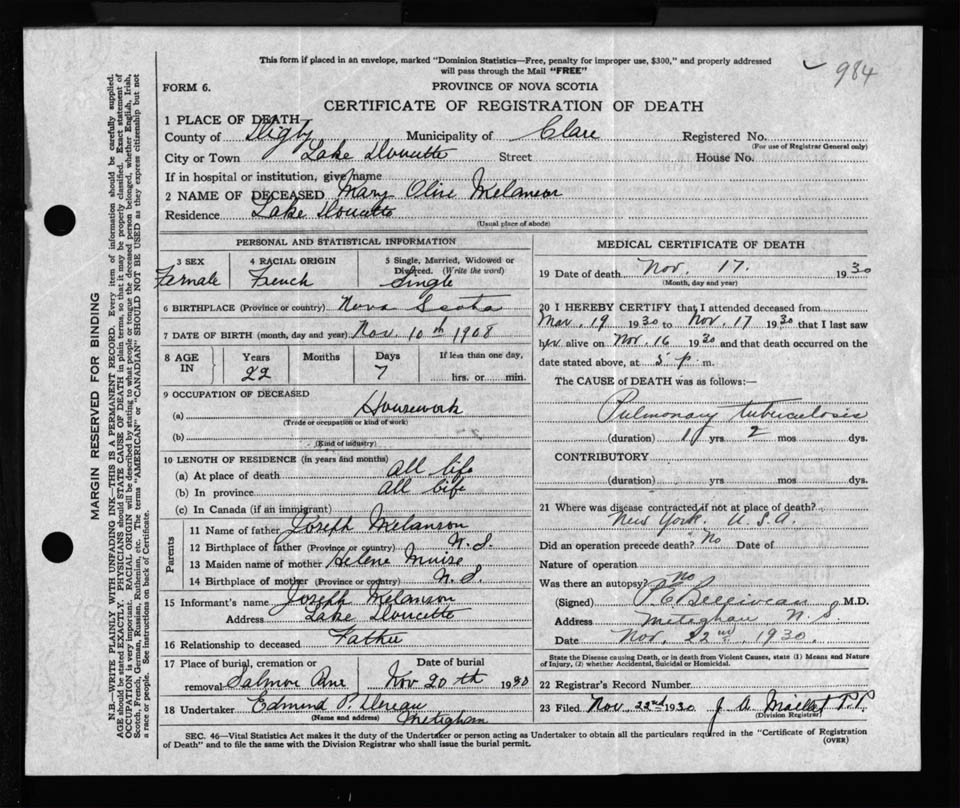 This form if placed in an envelope, marked "Dominion Statistics—Free, penalty for improper use, $300," and properly addressed
will pass through the Mail "FREE"
984
FORM 6.
PROVINCE OF NOVA SCOTIA
CERTIFICATE OF REGISTRATION OF DEATH
1 PLACE OF DEATH
County of Digby Municipality of Clare Registered No.
(For use of Registrar General only)
City or Town Lake Doucette Street House No.
If in hospital or institution, give name
2 NAME OF DECEASED Mary Olive Melanson
Residence Lake Doucette
(Usual place of abode)
PERSONAL AND STATISTICAL INFORMATION
3 SEX 4 RACIAL ORIGIN 5 Single, Married, Widowed or
Divorced. (Write the word)
Female French Single
6 BIRTHPLACE (Province or country) Nova Scotia
7 DATE OF BIRTH (month, day and year) Nov. 10th 1908
8 AGE IN Years Months Days If less than one day,
22 7 hrs. or min.
9 OCCUPATION OF DECEASED
(a) Housework
(Trade or occupation or kind of work)
(b)
(Kind of industry)
10 LENGTH OF RESIDENCE (in years and months)
(a) At place of death all life
(b) In province all life
(c) In Canada (if an immigrant)
Parents
11 Name of father Joseph Melanson
12 Birthplace of father (Province or country) N.S.
13 Maiden name of mother Helene Muise
14 Birthplace of mother (Province or country) N.S.
15 Informant's name Joseph Melanson
Address Lake Doucette
16 Relationship to deceased Father
17 Place of burial, cremation or Date of burial
removal Salmon River Nov 20th 1930
18 Undertaker Edmund P. Doreau
(Name and address) Meteghan
MEDICAL CERTIFICATE OF DEATH
19 Date of death Nov. 17. 1930
(Month, day and year)
20 I HEREBY CERTIFY that I attended deceased from
Mar. 19 1930 to Nov. 17 1930 that I last saw
her alive on Nov. 16 1930 and that death occurred on the
date stated above, at 5 p. m.
The CAUSE OF DEATH was as follows:—
Pulmonary tuberculosis
(duration) 1 yrs 2 mos dys.
CONTRIBUTORY
(duration) yrs. mos. dys.
21 Where was disease contracted if not at place of death?
New York. U.S.A.
Did an operation precede death? No Date of
Nature of operation
Was there an autopsy? no
(Signed) P.E. Belliveau M.D.
Address Meteghan N.S.
Date Nov. 22nd, 1930.
State the Disease causing Death, or in death from Violent Causes, state (1) Means and Nature
of Injury, (2) whether Accidental, Suicidal or Homicidal.
22 Registrar's Record Number
23 Filed Nov 22nd 1930 J. A. Maillet P.P.
(Division Registrar)
SEC. 46—Vital Statistics Act makes it the duty of the Undertaker or person acting as Undertaker to obtain all the particulars required in the "Certificate of Registration
of Death" and to file the same with the Division Registrar who shall issue the burial permit.
(OVER)
MARGIN RESERVED FOR BINDING
N.B.—WRITE PLAINLY WITH UNFADING INK—THIS IS A PERMANENT RECORD. Every item of information should be carefully supplied.
AGE should be stated EXACTLY. PHYSICIANS should STATE CAUSE OF DEATH in plain terms, so that it may be properly classified. Exact statement of
OCCUPATION is very important. RACIAL ORIGIN will be described by stating to what people or tongue the deceased person belonged, whether English, Irish,
Scotch, French, German, Russian, Ruthenian, etc. The terms "AMERICAN" or "CANADIAN" SHOULD NOT BE USED as they express citizenship but not
a race or people. See instructions on back of Certificate.